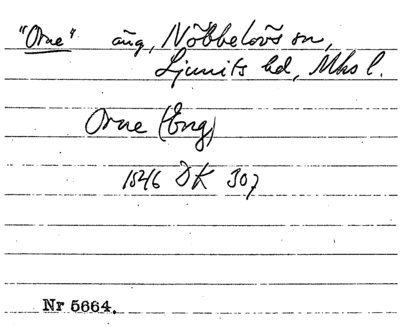 "Orne" äng, Nöbbelövs sn,
Ljunits hd, Mhs l.
Orne (Eng)
1546 DK 307
Nr 5664.